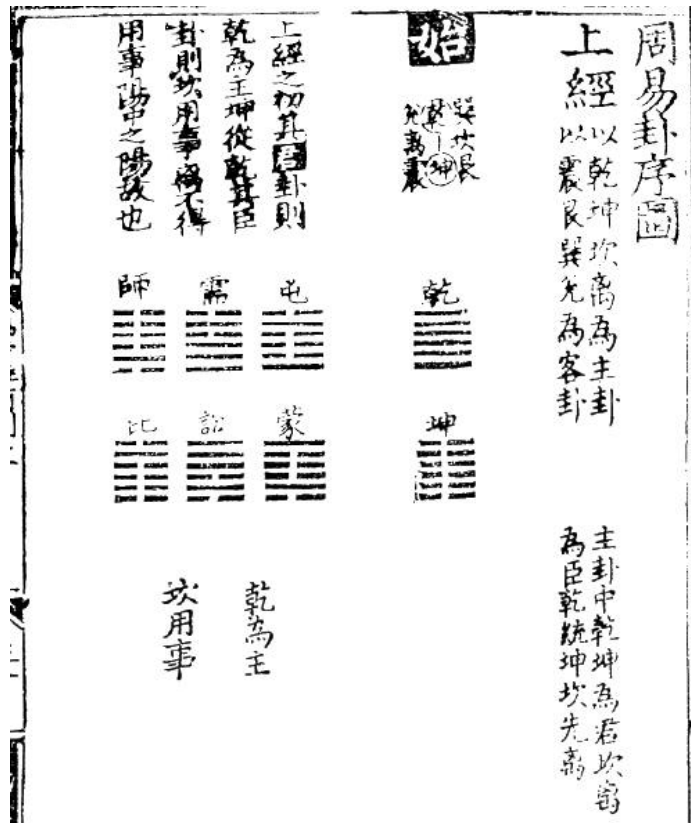 周易卦序圖
上經
以乾坤坎离為主卦
以震艮巽兌為客卦
主卦中乾坤為君坎离
為臣乾統坤坎先离
始
巽坎艮
乾坤
兌离震
乾
坤
上經之初其君卦則
乾為主坤從乾其臣
卦則坎用事离不得
用事陽中之陽故也
屯
蒙
需
訟
師
比
乾為主
坎用事